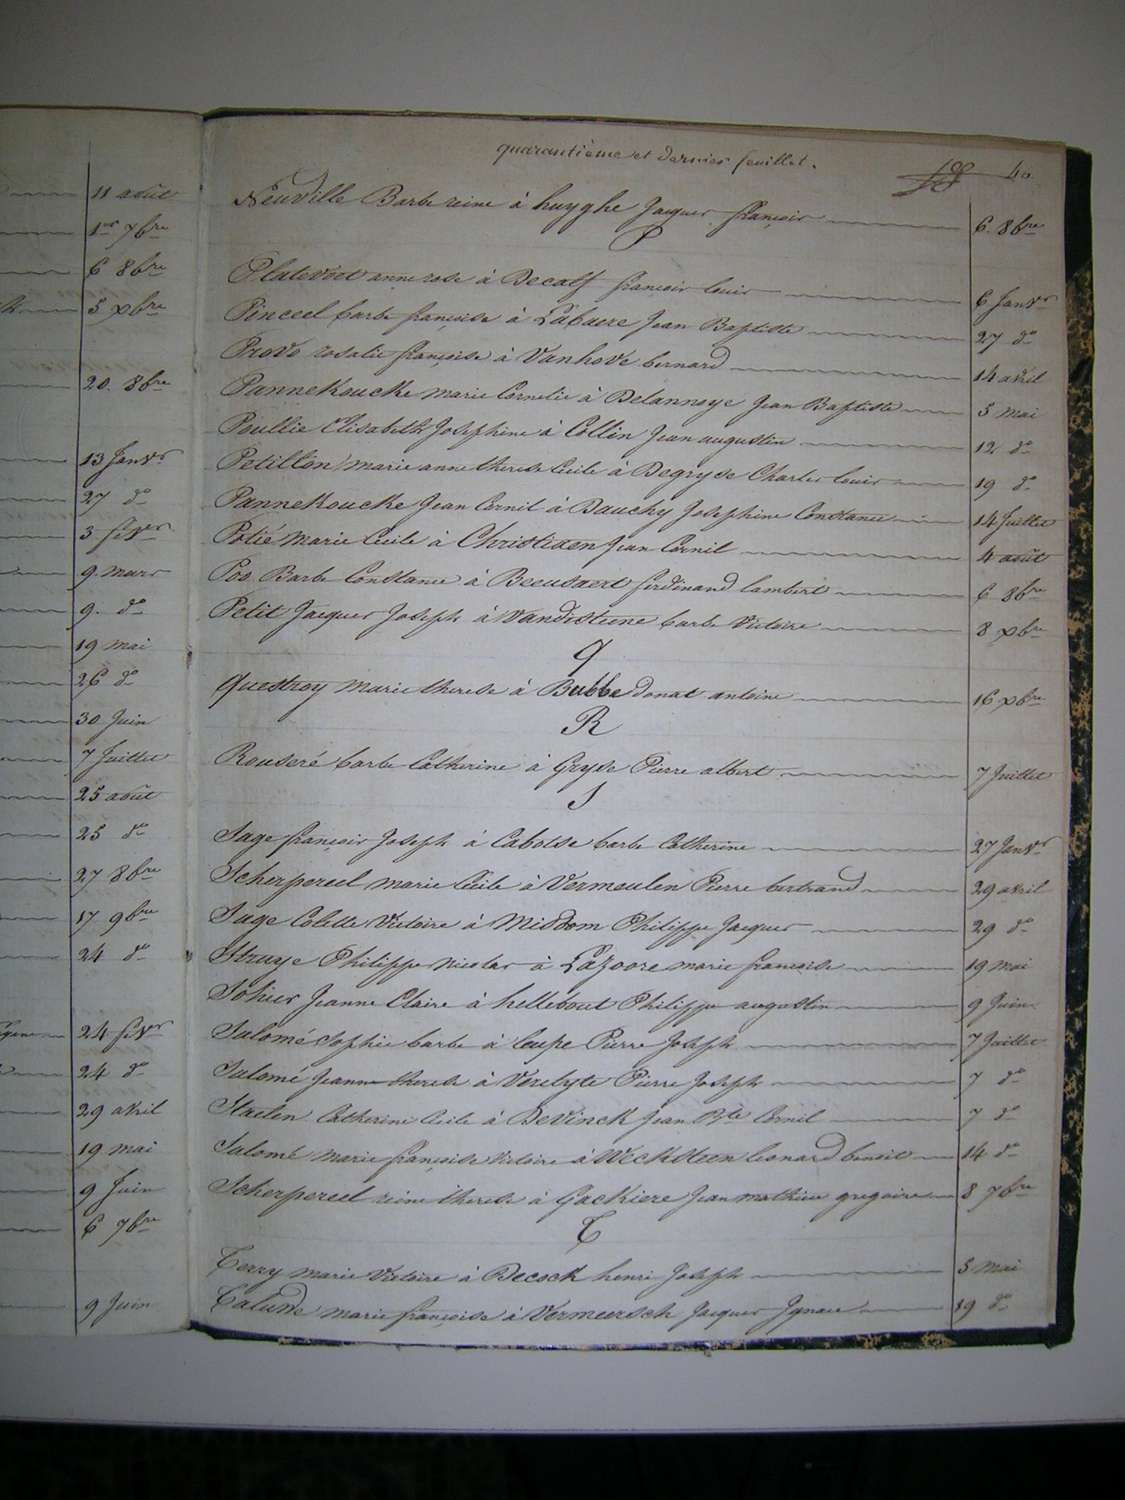 11 août
1er 7bre
6 8bre
5 xbre
20. 8bre
13 Janvr
27 do
3 fevr
9 mars
9. do
19 mai
26 do
30 Juin
7 Juillet
25 août
25 do
27 8bre
17 9bre
24 do
24 fevr
24 do
29 avril
19 mai
9 Juin
6 7bre
9 Juin
quarantième et dernier feuillet.
40.
Neuville Barbe reine à huyghe Jacques françois 6. 8bre
P
Platevoet anne rose à Decalf françois louis 6 Janvr
Pinceel barbe françoise à Labaere Jean Baptiste 27 do
Provo rosalie françoise à Vanhove bernard 14 avril
Pannekoucke marie Cornelie à Delannoye Jean Baptiste 5 mai
Poullie Elisabeth Josephine à Collin Jean augustin 12 do
Petillon marie anne therese Cecile à Degryse Charles louis 19 do
Pannekoucke Jean Cornil à Bauchy Josephine Constance 14 Juillet
Potié Marie Cecile à Christiaen Jean Cornil 4 août
Pos Barbe Constance à Beeusaert ferdinand lambert 6 8bre
Petit Jacques Joseph à Vandesteene barbe Victoire 8 xbre
Q
Questroy Marie therese à Bubbe donat antoine 16 xbre
R
Rouseré barbe Catherine à Gryse Pierre albert 7 Juillet
S
Sage françois Joseph à Cabolse barbe Catherine 27 Janvr
Scherpereel marie Cecile à Vermeulen Pierre bertrand 29 avril
Sage Colette Victoire à Misdom Philippe Jacques 29 do
Struye Philippe nicolas à Lazoore marie françoise 19 mai
Sohier Jeanne Claire à hellebout Philippe augustin 9 Juin
Salomé Sophie barbe à Coupe Pierre Joseph 7 Juillet
Salomé Jeanne therese à Verebyte Pierre Joseph 7 do
Staelen Catherine Cecile à Devinck Jean Bte Cornil 7 do
Salomé marie françoise Victoire à Wecksteen leonard benoit 14 do
Scherpereel reine therese à Gackiere Jean mathieu gregoire 8 7bre
T
Terry marie Victoire à Decock henri Joseph 5 mai
marie françoise à Vermeersch Jacques Ignace 19 do